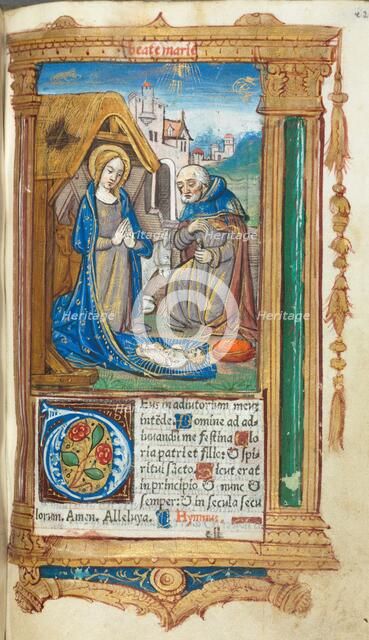 beate marie
Eus in adiutorium meuz
intēde. Domine ad ad
iuuandū me festina Glo
ria patri et filio: & spi
ritui sācto. Sicut erat
in principio & nunc &
semper: & in secula secu
lorum. Amen. Alleluya. Hymnus.
Heritage
Heritage
Heritage
Heritage
Heritage